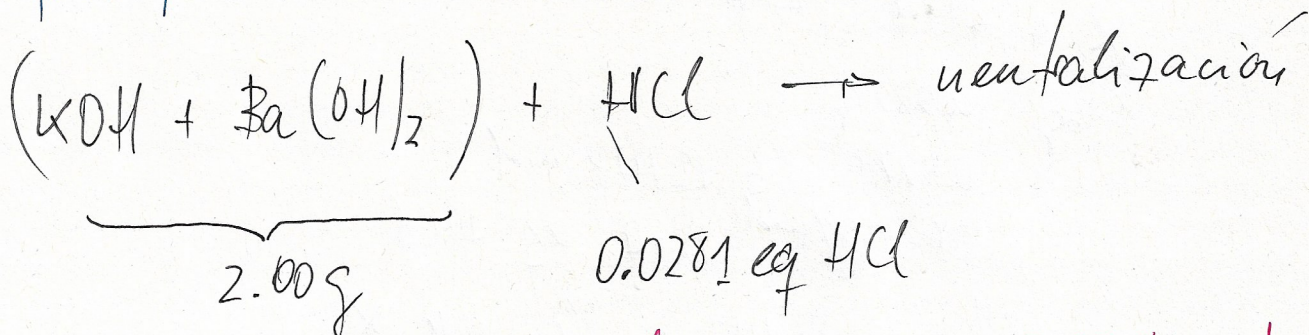 (KOH + Ba(OH)2) + HCl → neutralización
2.00g
0.0281 eq HCl